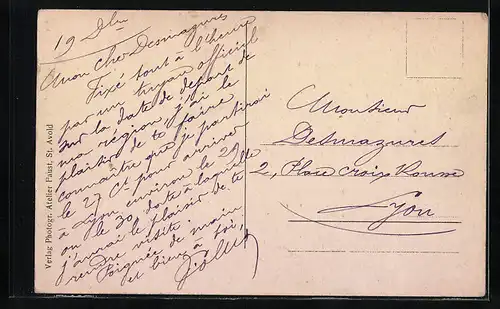 19 Dbre
Mon cher Desmazures
Fixé tout à l'heure
par un tuyau officiel
sur la date de départ de
ma région, j'ai le
plaisir de te faire
connaître que je partirai
le 27 Ct pour arriver
à Lyon environ le 29
ou le 30, date à laquelle
j'aurai le plaisir de te
rendre visite.
Poignée de main
et bien à toi,
Monsieur
Desmazures
2, Place Croix Rousse
Lyon
Verlag Photogr. Atelier Paist, St. Avold